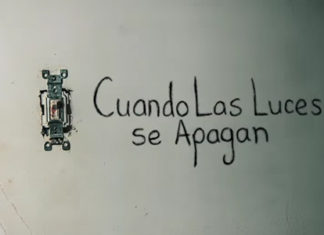 Cuando Las Luces
se Apagan